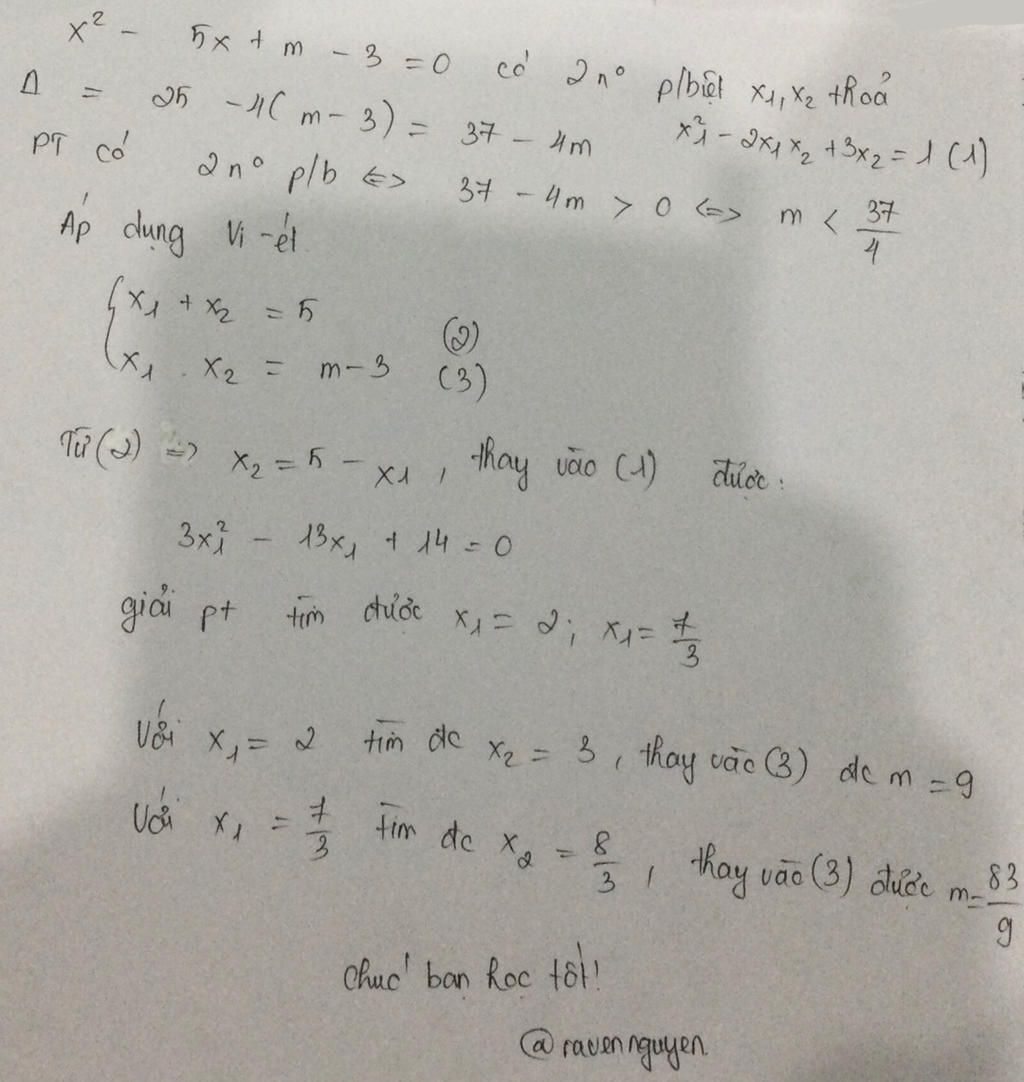 x² - 5x + m - 3 = 0 có 2 nº p/biệt x₁, x₂ thoả
x₁² - 2x₁x₂ + 3x₂ = 1 (1)
Δ = 25 - 4( m - 3) = 37 - 4m
PT có 2 nº p/b <=> 37 - 4m > 0 <=> m < 37/4
Áp dụng Vi-ét
{ x₁ + x₂ = 5 (2)
x₁ . x₂ = m - 3 (3)
Từ (2) => x₂ = 5 - x₁ , thay vào (1) được:
3x₁² - 13x₁ + 14 = 0
giải pt tìm được x₁ = 2; x₁ = 7/3
Với x₁ = 2 tìm đc x₂ = 3 , thay vào (3) đc m = 9
Với x₁ = 7/3 tìm đc x₂ = 8/3 , thay vào (3) được m = 83/9
Chúc bạn học tốt!
@ravennguyen.